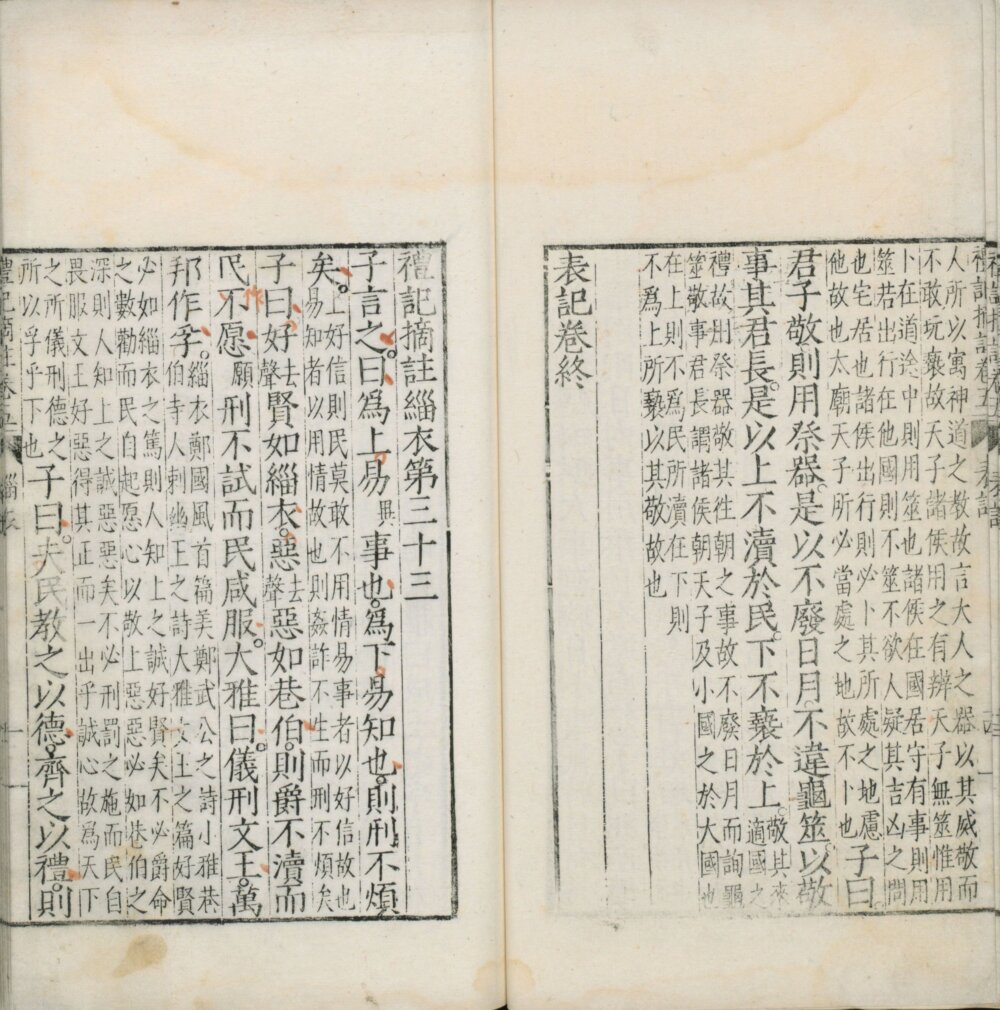 禮記摘註卷五 表記 四
人所以寓神道之教故言大人之器以其威敬而
不敢玩褻故天子諸侯用之有辨天子無筮惟用
卜在道途中則用筮也諸侯在國居守有事則用
筮若出行在他國則不筮不欲人疑其吉凶之問
也宅居也諸侯出行則必卜其所處之地慮
他故也太廟天子所必當處之地故不卜也
子曰
君子敬則用祭器是以不廢日月不違龜筮以敬
事其君長是以上不瀆於民下不褻於上
敬其來
適國之
禮故出祭器敬其徃朝之事故不廢日月而詢龜
筮敬事君長謂諸侯朝天子及小國之於大國也
在上則不爲民所瀆在下則
不爲上所褻以其敬故也
表記卷終
禮記摘註緇衣第三十三
子言之曰爲上易異事也爲下易知也則刑不煩
矣
上好信則民莫敢不用情易事者以好信故也
易知者以用情故也則姦詐不生而刑不煩矣
子曰好去聲賢如緇衣惡去聲惡如巷伯則爵不瀆而
民不作愿願刑不試而民咸服大雅曰儀刑文王萬
邦作孚
緇衣鄭國風首篇美鄭武公之詩小雅巷
伯寺人刺幽王之詩大雅文王之篇好賢
必如緇衣之篤則人知上之誠好賢矣不必爵命
之數勸而民自起愿心以敬上惡惡必如巷伯之
深則人知上之誠惡矣不必刑罰之施而民自
畏服文王好惡得其正而一出乎誠心故爲天下
之所儀刑德之
所以孚乎下也
子曰夫民教之以德齊之以禮則
禮記摘註卷五 緇衣 一